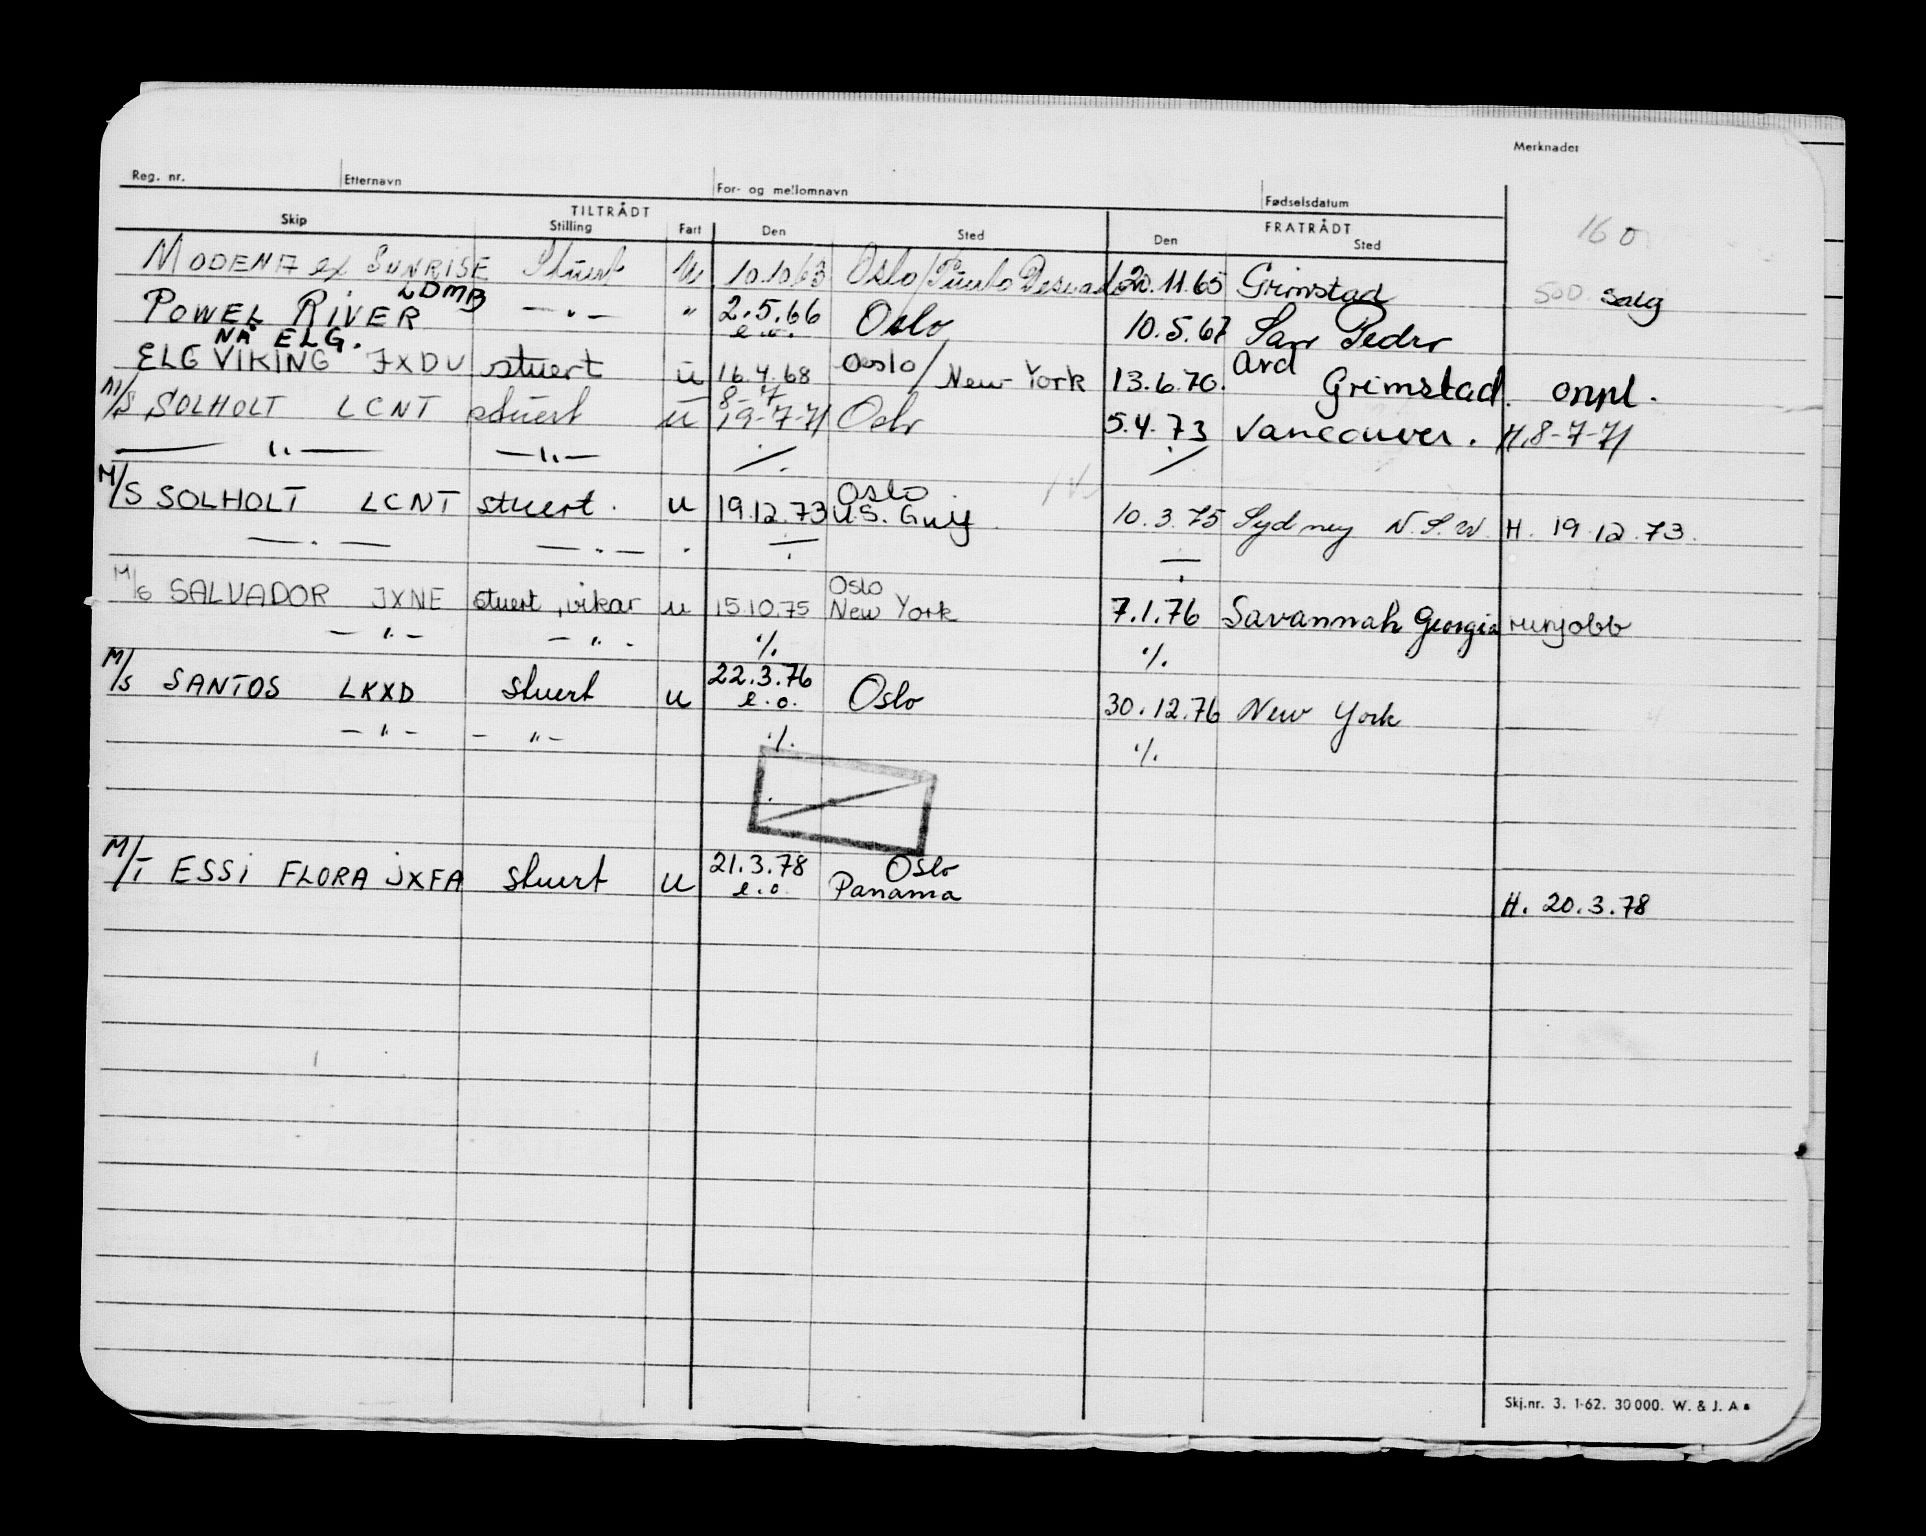 Merknader
Reg. nr. Etternavn For- og mellomnavn Fødselsdatum
TILTRÅDT FRATRÅDT
Skip Stilling Fart Den Sted Den Sted
160
MODENA ex SUNRISE Stuert u 10.10.63 Oslo/Puerto 20.11.65 Grimstad 500 salg
LDMB
POWEL RIVER — " — " 2.5.66 e.o. Oslo 10.5.67 San Pedro
NÅ ELG.
ELG VIKING JXDU stuert u 16.4.68 Oslo/New York 13.6.70. Grimstad. oppl.
8-7
M/S SOLHOLT LCNT stuert u 19-7-71 Oslo 5.4.73 Vancouver. H. 8-7-71
— " — — " — ./. ./.
M/S SOLHOLT LCNT stuert. u 19.12.73 Oslo U.S. Gulf 10.3.75 Sydney N.S.W. H. 19.12.73.
— " — — " — " ./. ./.
M/S SALVADOR JXNE stuert, vikar u 15.10.75 Oslo New York 7.1.76 Savannah Georgia runjobb
— " — — " — ./. ./.
M/S SANTOS LKXD stuert u 22.3.76 e.o. Oslo 30.12.76 New York
— " — — " — ./. ./.
M/T ESSI FLORA JXFA stuert u 21.3.78 e.o. Oslo Panama H. 20.3.78
Skj.nr. 3. 1-62. 30000. W. & J. A